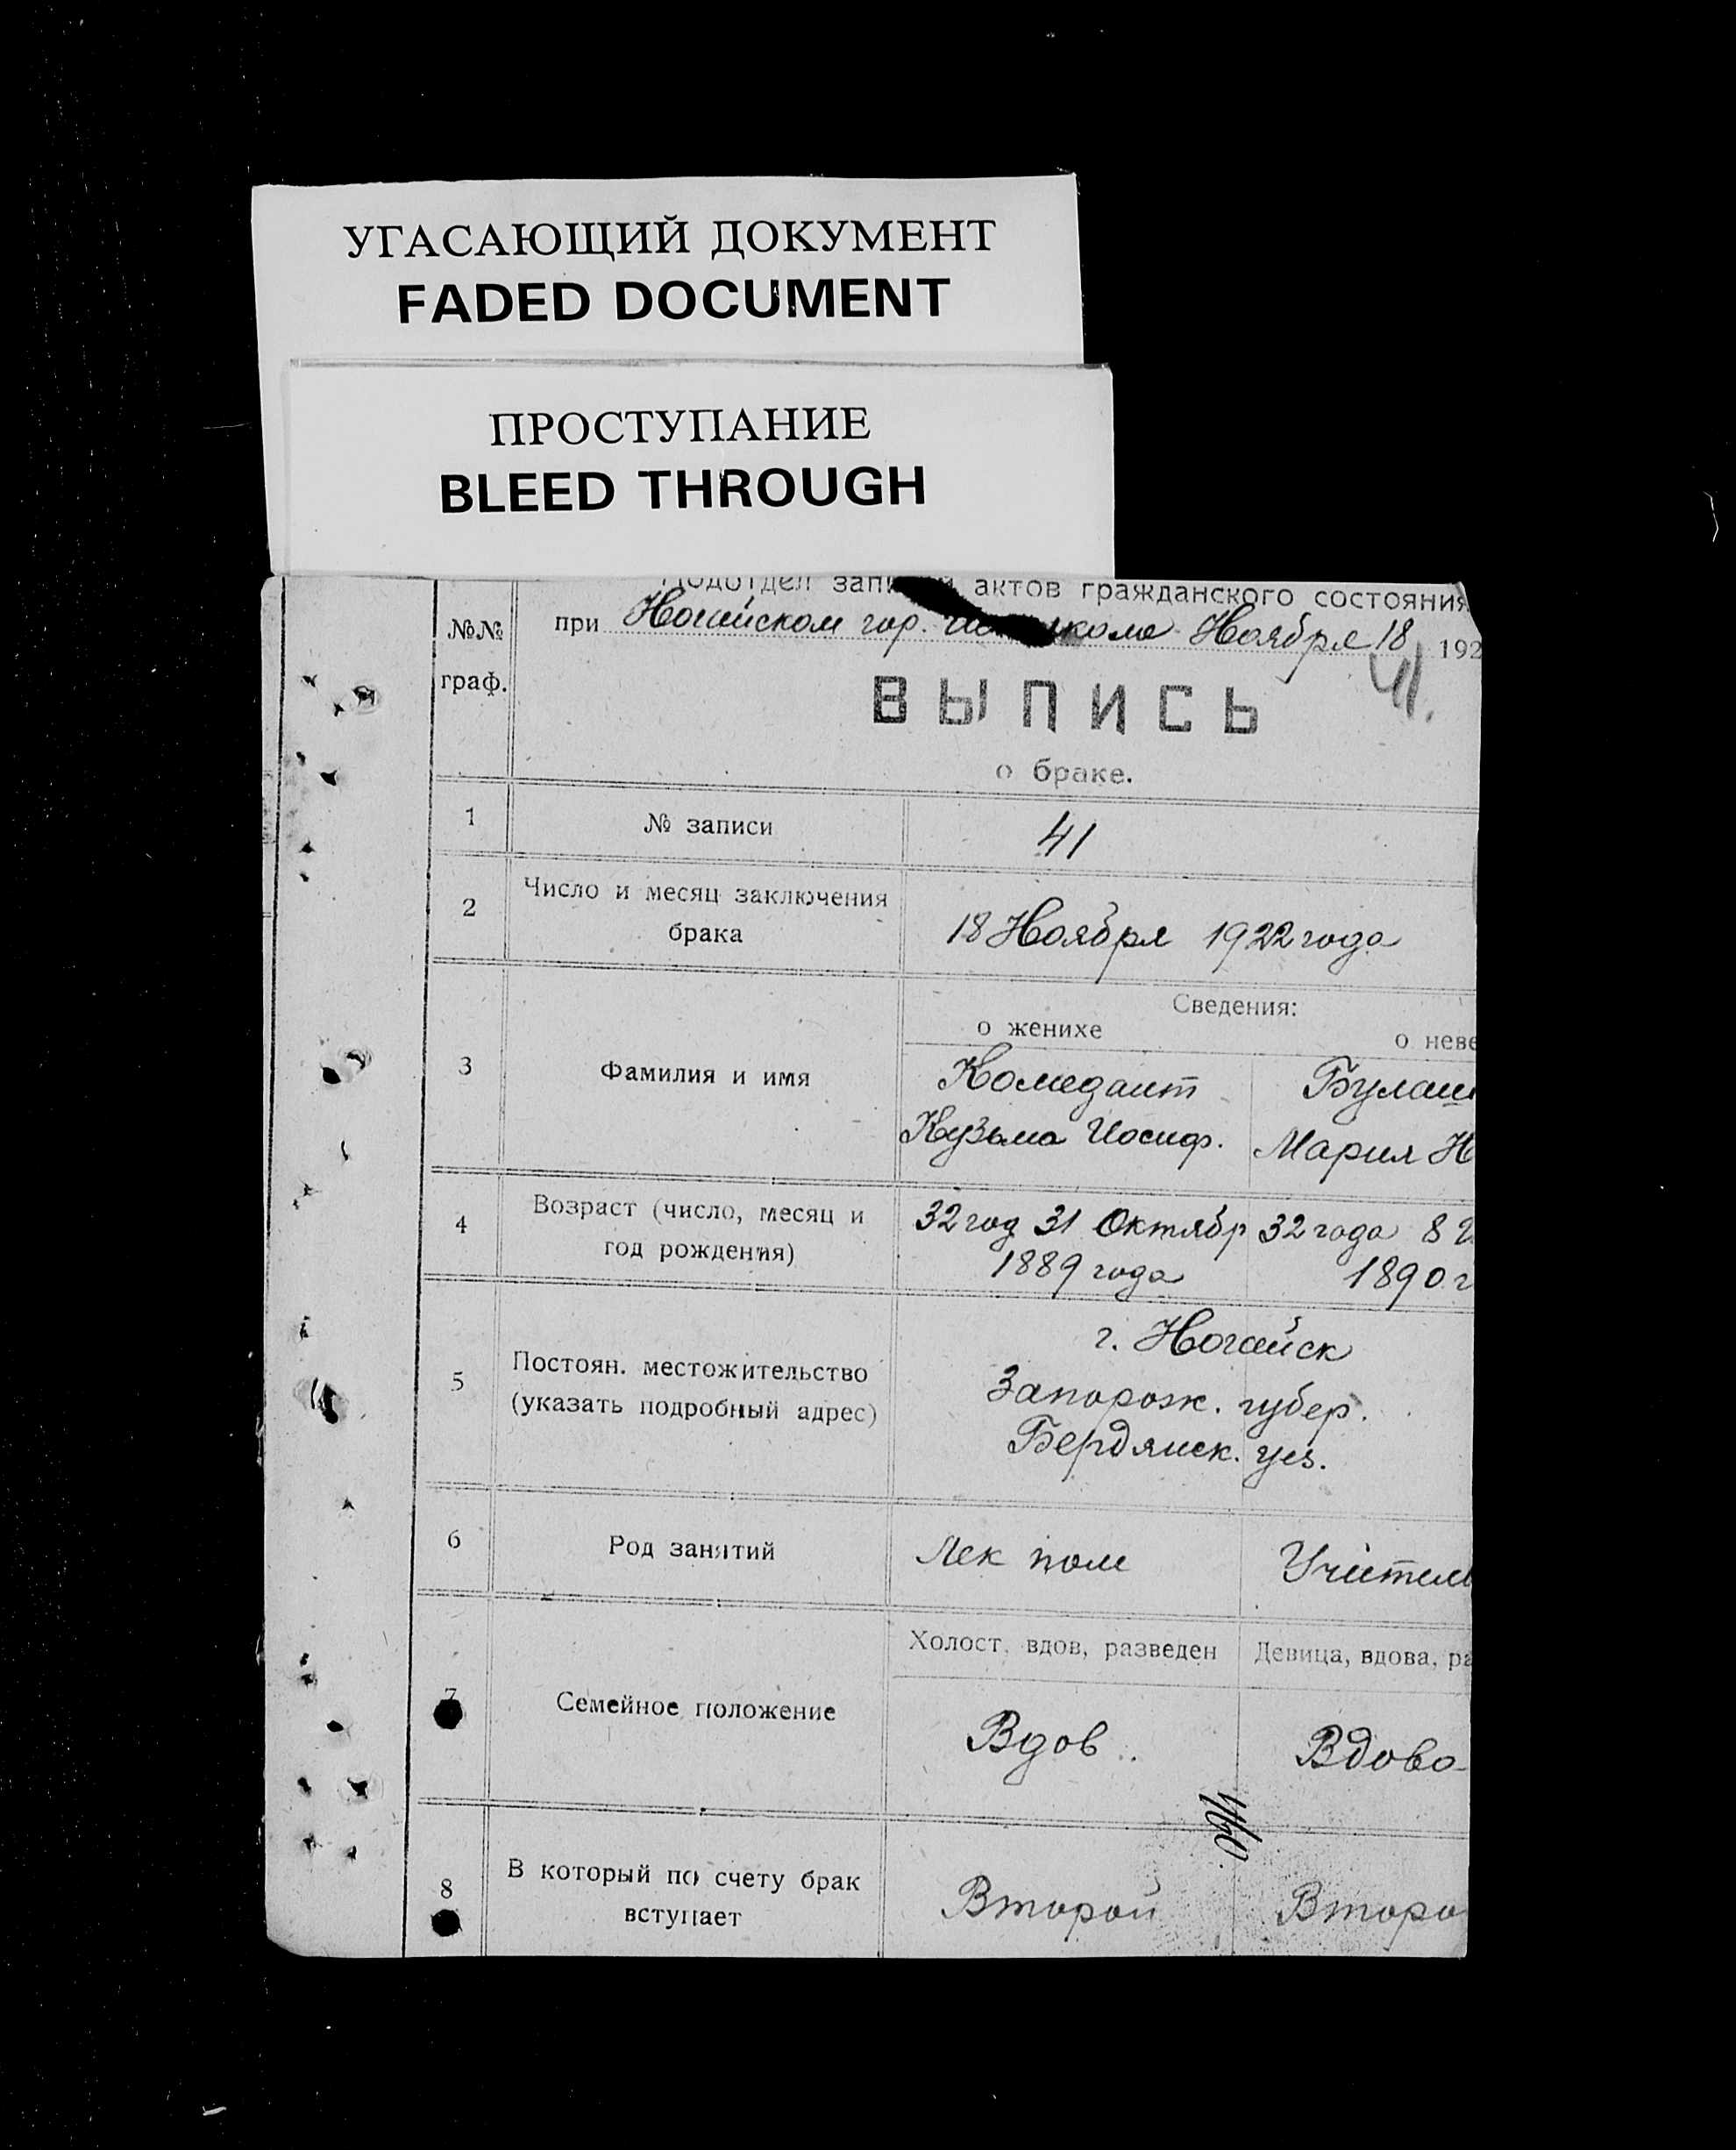 УГАСАЮЩИЙ ДОКУМЕНТ
FADED DOCUMENT
ПРОСТУПАНИЕ
BLEED THROUGH
Подотдел записи актов гражданского состояния
№№ граф.
при Ногайском гор. Ноября 18 192
41.
ВЫПИСЬ
о браке.
1 № записи 41
2 Число и месяц заключения
брака 18 Ноября 1922 года
Сведения:
о женихе о неве
3 Фамилия и имя Комедант Булаш
Кузьма Иосиф. Мария Н
4 Возраст (число, месяц и
год рождения)
32 год 31 Октябр 32 года 8
1889 года 1890 г
5 Постоян. местожительство
(указать подробный адрес)
г. Ногайск
Запорож. губер.
Бердянск. уез.
6 Род занятий Лек пом Учитель
Холост, вдов, разведен Девица, вдова, ра
7 Семейное положение Вдов Вдова
8 В который по счету брак
вступает Второй Второ